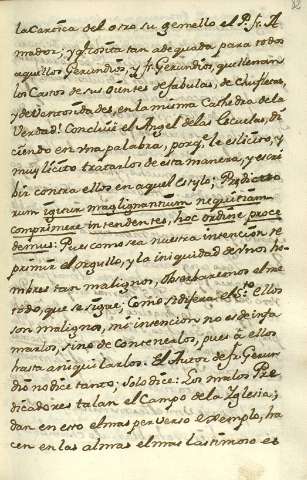 82
la Caroña del otro su gemello el P. fr. A-
mador; y q. cosita tan adequada para todos
aquellos Gerundios, y fr. Gerundios, que llenan
los Cartos de sus oientes de fabulas, de Chufletas,
y de Vantonàdas, en la misma Cathedra de la
Verdad! Concluie el Angel de las Escuelas, di-
ciendo en una palabra, porq. le es licito, y
muy licito tratarlos de esta manera, y escri-
bir contra ellos en aquel estylo; Prædicto-
rum igitur malignantium nequitiam
comprimere intendentes, hoc ordine proce-
demus: Pues como sea nuestra intencion re-
primir el orgullo, y la iniquidad de unos ho-
mbres tan malignos, observaremos el me-
todo, que se sigue; Como si dijera el Sto. ellos
son malignos, mi intencion no es de infa-
marlos, sino de contenerlos, pues à ellos
hasta aniquilarlos: El Autor de fr. Gerun-
dio no dice tanto; solo dice: Los malos Pre-
dicadores talan el Campo de la Yglesia;
dan en esto el mas perverso exemplo, ha-
cen en las almas el mas lastimoso es-